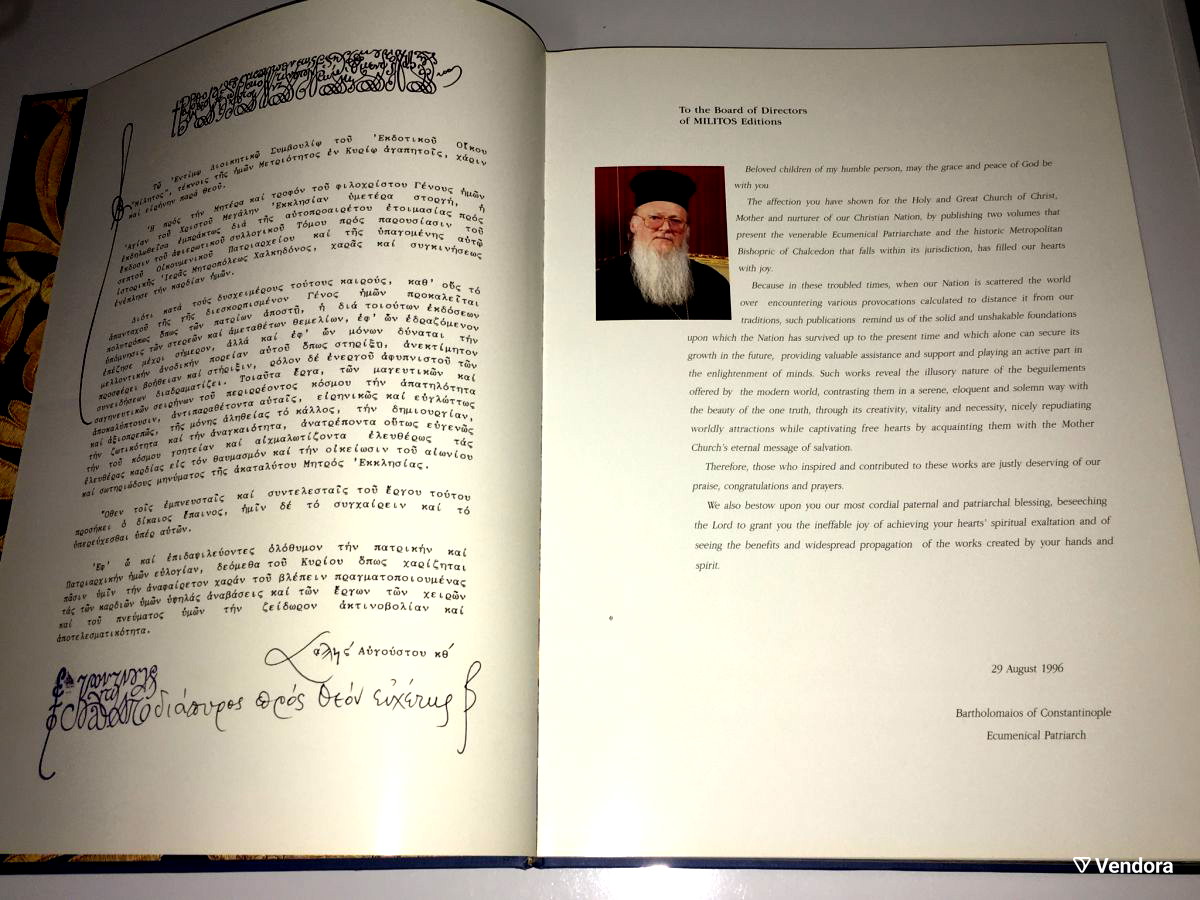 Τῷ Ἐντίμῳ Διοικητικῷ Συμβουλίῳ τοῦ Ἐκδοτικοῦ Οἴκου
"Μίλητος", τέκνοις τῆς ἡμῶν Μετριότητος ἐν Κυρίῳ ἀγαπητοῖς, χάριν
καί εἰρήνην παρά Θεοῦ.
Ἡ πρός τήν Μητέρα καί τροφόν τοῦ φιλοχρίστου Γένους ἡμῶν
Ἁγίαν τοῦ Χριστοῦ Μεγάλην Ἐκκλησίαν ὑμετέρα στοργή, ἡ
ἐκδηλωθεῖσα ἐμπράκτως διά τῆς αὐτοπροαιρέτου ἑτοιμασίας πρός
ἔκδοσιν τοῦ ἀφιερωτικοῦ συλλογικοῦ Τόμου πρός παρουσίασιν τοῦ
σεπτοῦ Οἰκουμενικοῦ Πατριαρχείου καί τῆς ὑπαγομένης αὐτῷ
ἱστορικῆς Ἱερᾶς Μητροπόλεως Χαλκηδόνος, χαρᾶς καί συγκινήσεως
ἐνέπλησε τήν καρδίαν ἡμῶν.
Διότι κατά τούς δυσχειμέρους τούτους καιρούς, καθ' οὕς τό
ἁπανταχοῦ τῆς γῆς διεσκορπισμένον Γένος ἡμῶν προκαλεῖται
πολυτρόπως ὅπως τῶν πατρίων ἀποστῇ, ἡ διά τοιούτων ἐκδόσεων
ὑπόμνησις τῶν στερεῶν καί ἀμεταθέτων θεμελίων, ἐφ' ὧν ἑδραζόμενον
ἐπέζησε μέχρι σήμερον, ἀλλά καί ἐφ' ὧν μόνων δύναται τήν
μελλοντικήν ἀνοδικήν πορείαν αὐτοῦ ὅπως στηρίξῃ, ἀνεκτίμητον
προσφέρει βοήθειαν καί στήριξιν, ρόλον δέ ἐνεργοῦ ἀφυπνιστοῦ τῶν
συνειδήσεων διαδραματίζει. Τοιαῦτα ἔργα, τῶν μαγευτικῶν καί
σαγηνευτικῶν σειρήνων τοῦ περιρρέοντος κόσμου τήν ἀπατηλότητα
ἀποκαλύπτουσιν, ἀντιπαραθέτοντα αὐταῖς, εἰρηνικῶς καί εὐγλώττως
καί ἀξιοπρεπῶς, τῆς μόνης ἀληθείας τό κάλλος, τήν δημιουργίαν,
τήν ζωτικότητα καί τήν ἀναγκαιότητα, ἀνατρέποντα οὕτως εὐγενῶς
τήν τοῦ κόσμου γοητείαν καί αἰχμαλωτίζοντα ἐλευθέρως τάς
ἐλευθέρας καρδίας εἰς τόν θαυμασμόν καί τήν οἰκείωσιν τοῦ αἰωνίου
καί σωτηριώδους μηνύματος τῆς ἀκαταλύτου Μητρός Ἐκκλησίας.
Ὅθεν τοῖς ἐμπνευσταῖς καί συντελεσταῖς τοῦ ἔργου τούτου
προσήκει ὁ δίκαιος ἔπαινος, ἡμῖν δέ τό συγχαίρειν καί τό
ὑπερεύχεσθαι ὑπέρ αὐτῶν.
Ἐφ' ᾧ καί ἐπιδαψιλεύοντες ὁλόθυμον τήν πατρικήν καί
Πατριαρχικήν ἡμῶν εὐλογίαν, δεόμεθα τοῦ Κυρίου ὅπως χαρίζηται
πᾶσιν ὑμῖν τήν ἀναφαίρετον χαράν τοῦ βλέπειν πραγματοποιουμένας
τάς τῶν καρδιῶν ὑμῶν ὑψηλάς ἀναβάσεις καί τῶν ἔργων τῶν χειρῶν
καί τοῦ πνεύματος ὑμῶν τήν ζείδωρον ἀκτινοβολίαν καί
ἀποτελεσματικότητα.
Αὐγούστου κθ'
διάπυρος πρός Θεόν εὐχέτης
To the Board of Directors
of MILITOS Editions
Beloved children of my humble person, may the grace and peace of God be
with you
The affection you have shown for the Holy and Great Church of Christ,
Mother and nurturer of our Christian Nation, by publishing two volumes that
present the venerable Ecumenical Patriarchate and the historic Metropolitan
Bishopric of Chalcedon that falls within its jurisdiction, has filled our hearts
with joy.
Because in these troubled times, when our Nation is scattered the world
over encountering various provocations calculated to distance it from our
traditions, such publications remind us of the solid and unshakable foundations
upon which the Nation has survived up to the present time and which alone can secure its
growth in the future, providing valuable assistance and support and playing an active part in
the enlightenment of minds. Such works reveal the illusory nature of the beguilements
offered by the modern world, contrasting them in a serene, eloquent and solemn way with
the beauty of the one truth, through its creativity, vitality and necessity, nicely repudiating
worldly attractions while captivating free hearts by acquainting them with the Mother
Church's eternal message of salvation.
Therefore, those who inspired and contributed to these works are justly deserving of our
praise, congratulations and prayers.
We also bestow upon you our most cordial paternal and patriarchal blessing, beseeching
the Lord to grant you the ineffable joy of achieving your hearts' spiritual exaltation and of
seeing the benefits and widespread propagation of the works created by your hands and
spirit.
29 August 1996
Bartholomaios of Constantinople
Ecumenical Patriarch
Vendora